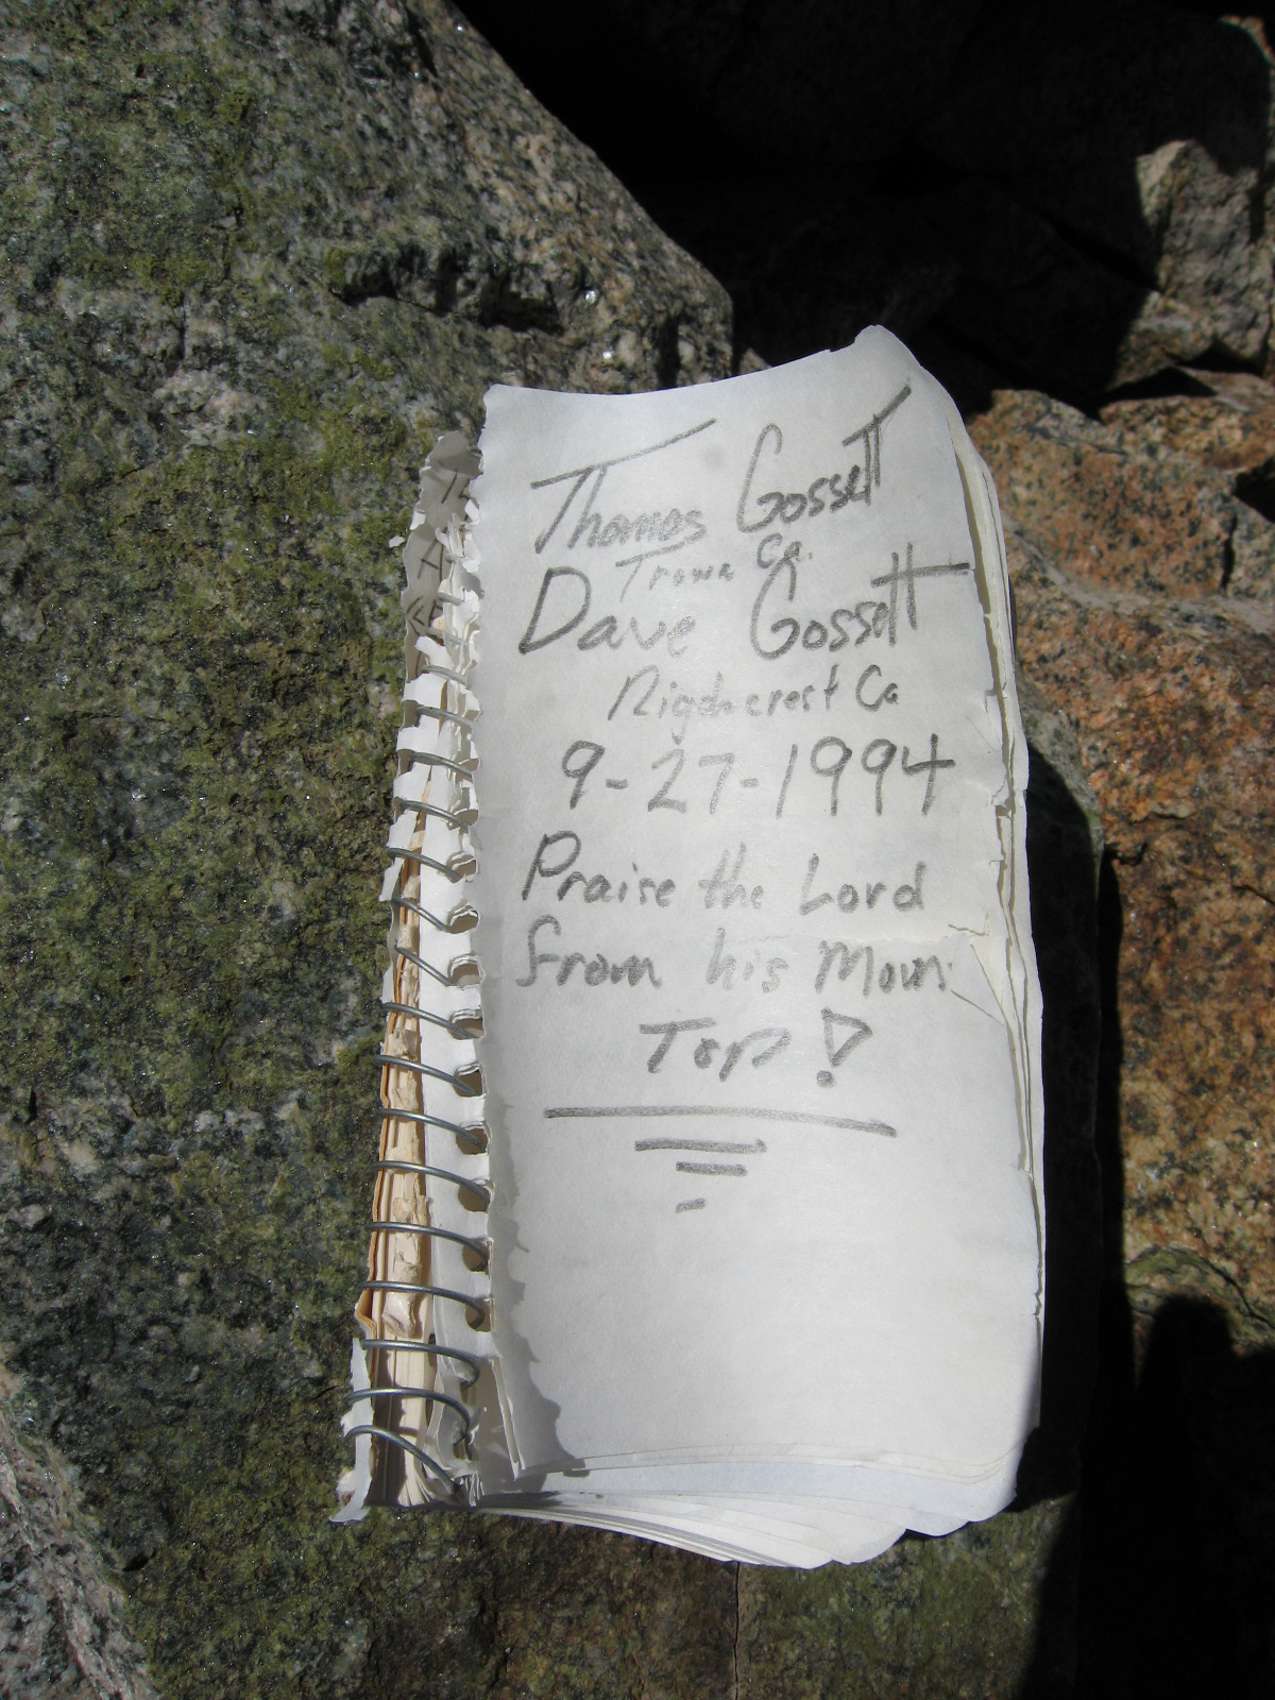 Thomas Gossett
Trona Ca.
Dave Gossett
Ridgecrest Ca
9-27-1994
Praise the Lord
from his Moun
Top!